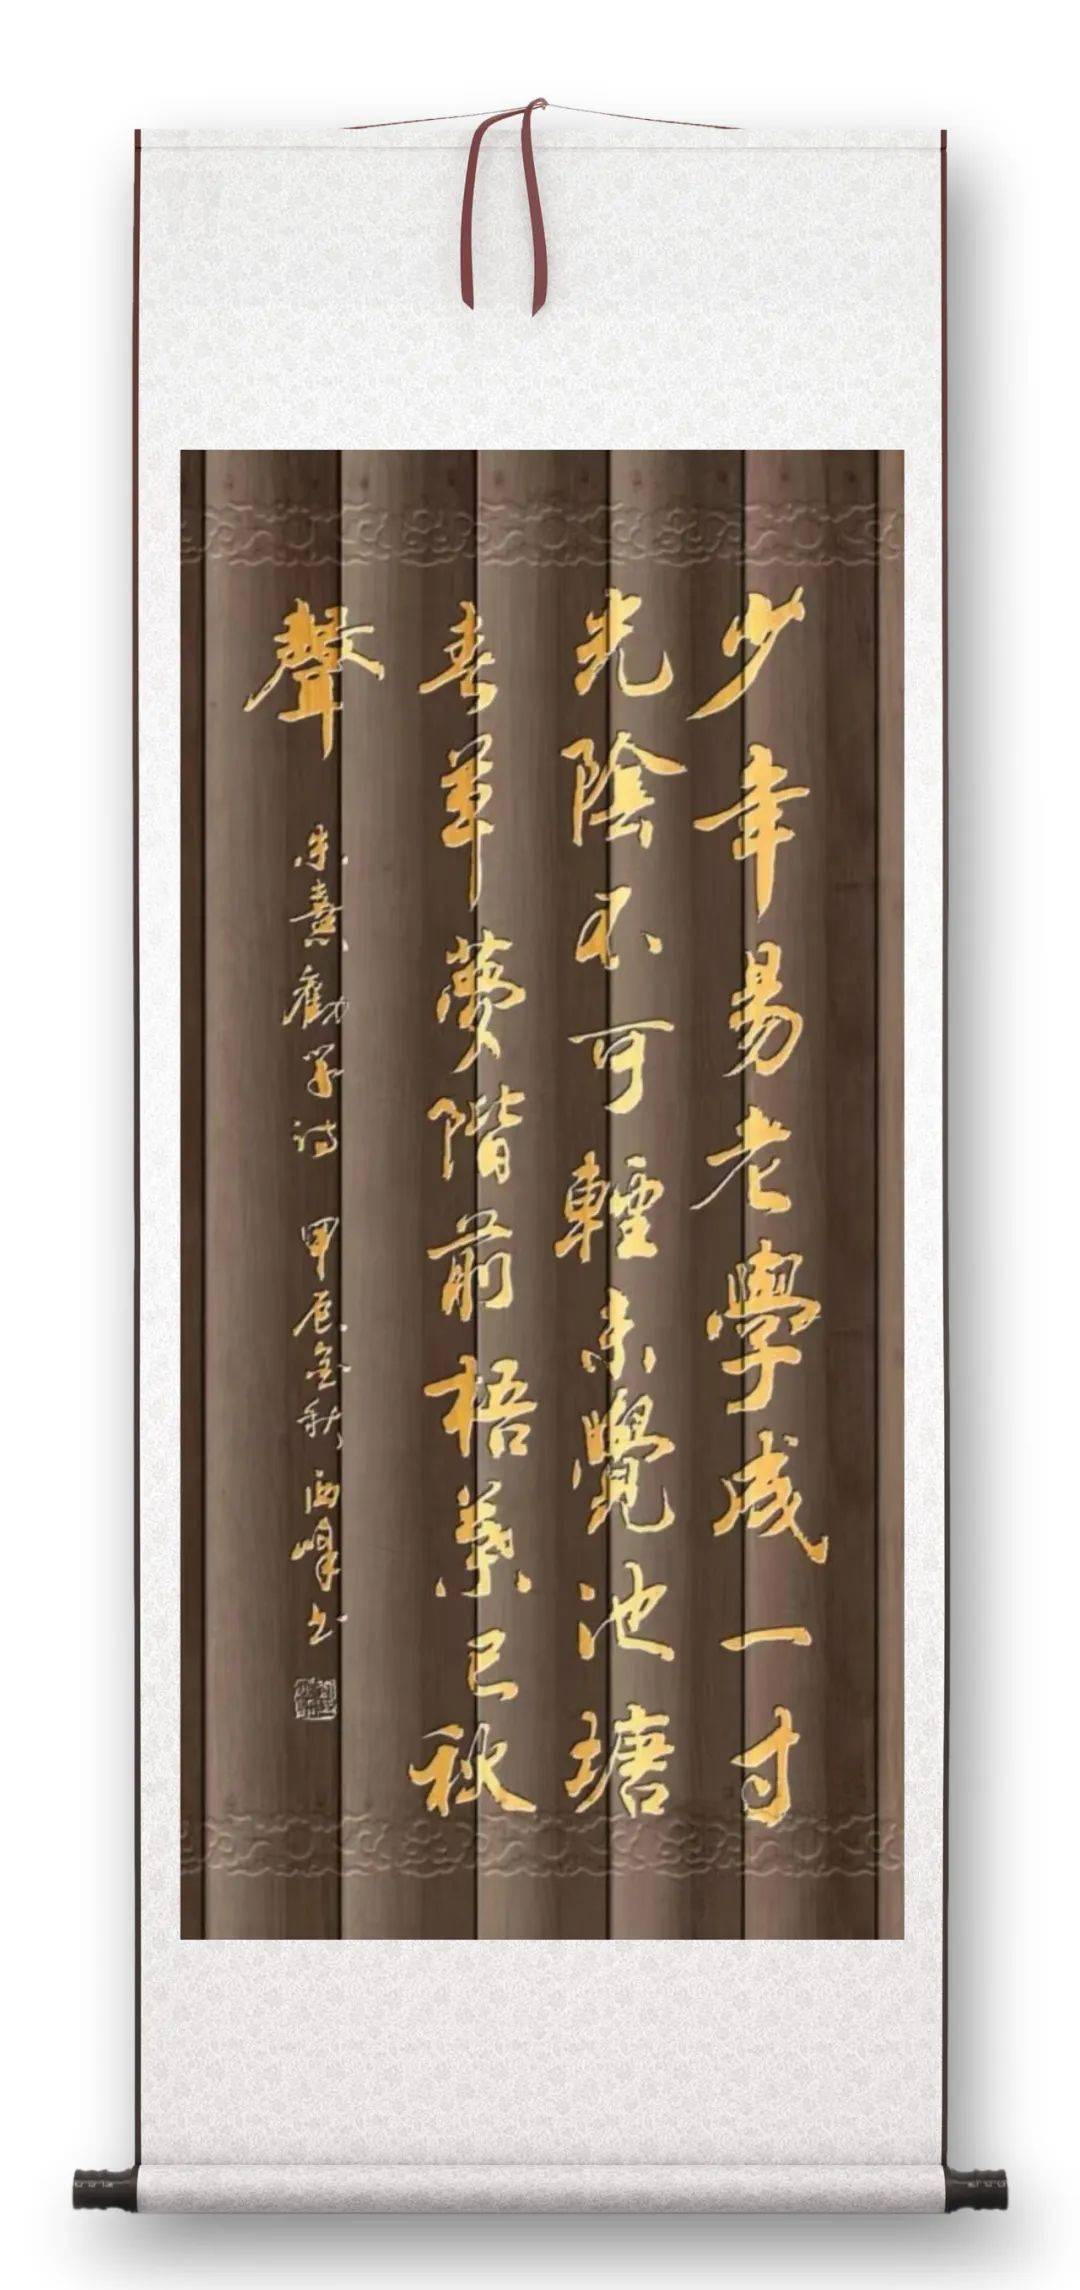 少年易老學成一寸
光陰不可輕未覺池塘
春草夢階前梧葉已秋
聲
朱熹勸学诗 甲辰金秋 西峰书